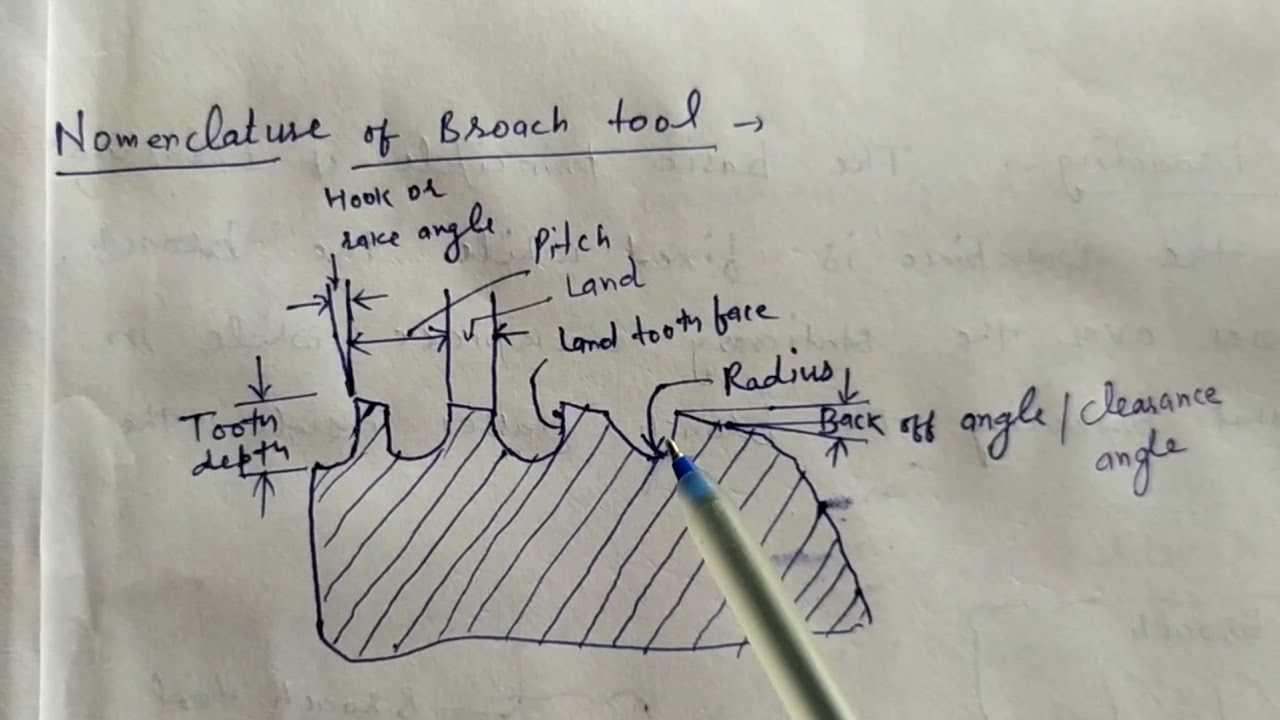 Nomenclature of Broach tool →
Hook or
rake angle
Pitch
Land
Land tooth face
Radius
Tooth
depth
Back off angle / Clearance
angle